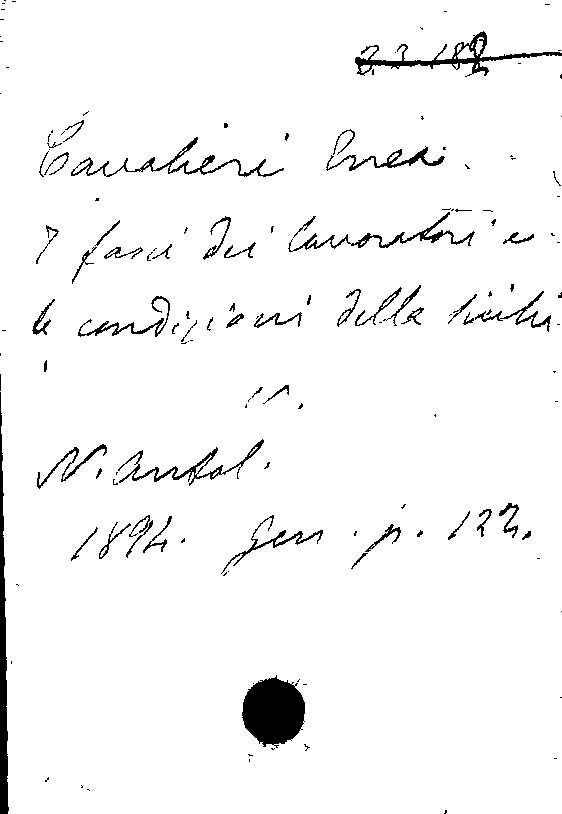 3.3.188
Cavalieri Enea.
I fasci dei lavoratori e
le condizioni della Sicilia
N. Antol.
1894. Gen. p. 122.